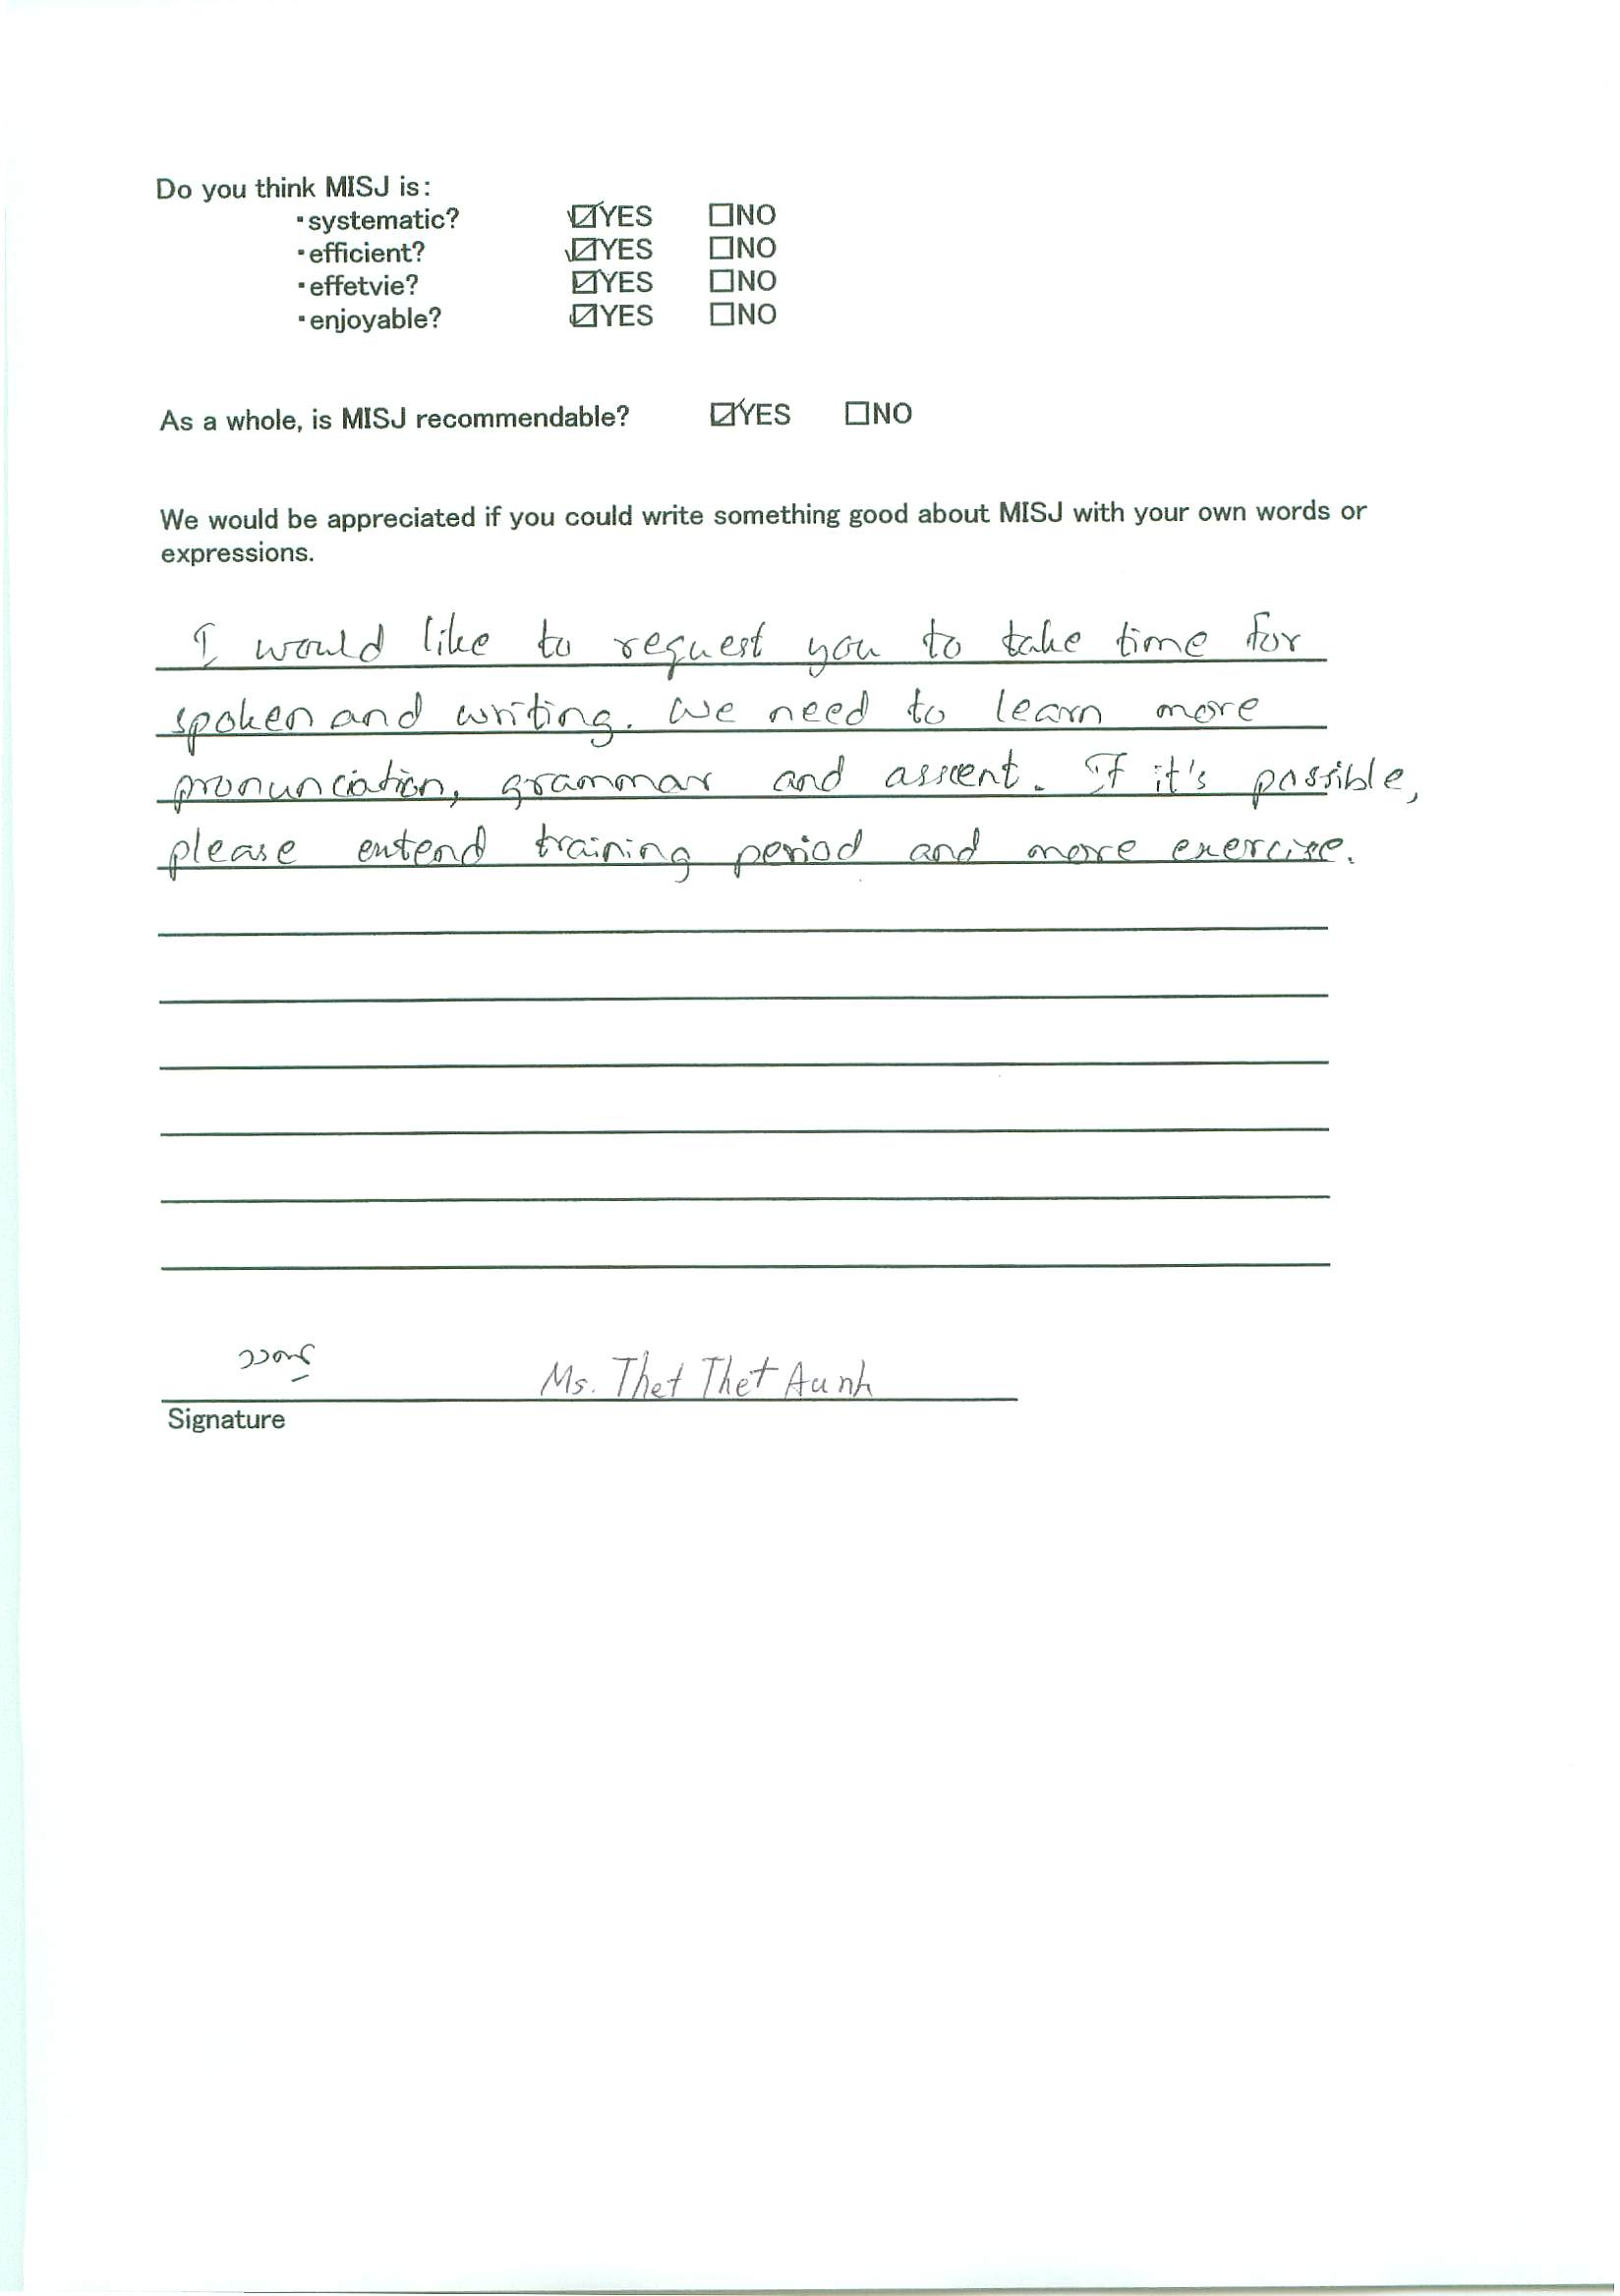 Do you think MISJ is:
・systematic? ☑YES ☐NO
・efficient? ☑YES ☐NO
・effetvie? ☑YES ☐NO
・enjoyable? ☑YES ☐NO
As a whole, is MISJ recommendable? ☑YES ☐NO
We would be appreciated if you could write something good about MISJ with your own words or
expressions.
I would like to request you to take time for
spoken and writing. We need to learn more
pronunciation, grammar and asscent. If it's possible,
please extend training period and more exercise.
Ms. Thet Thet Aunh
Signature